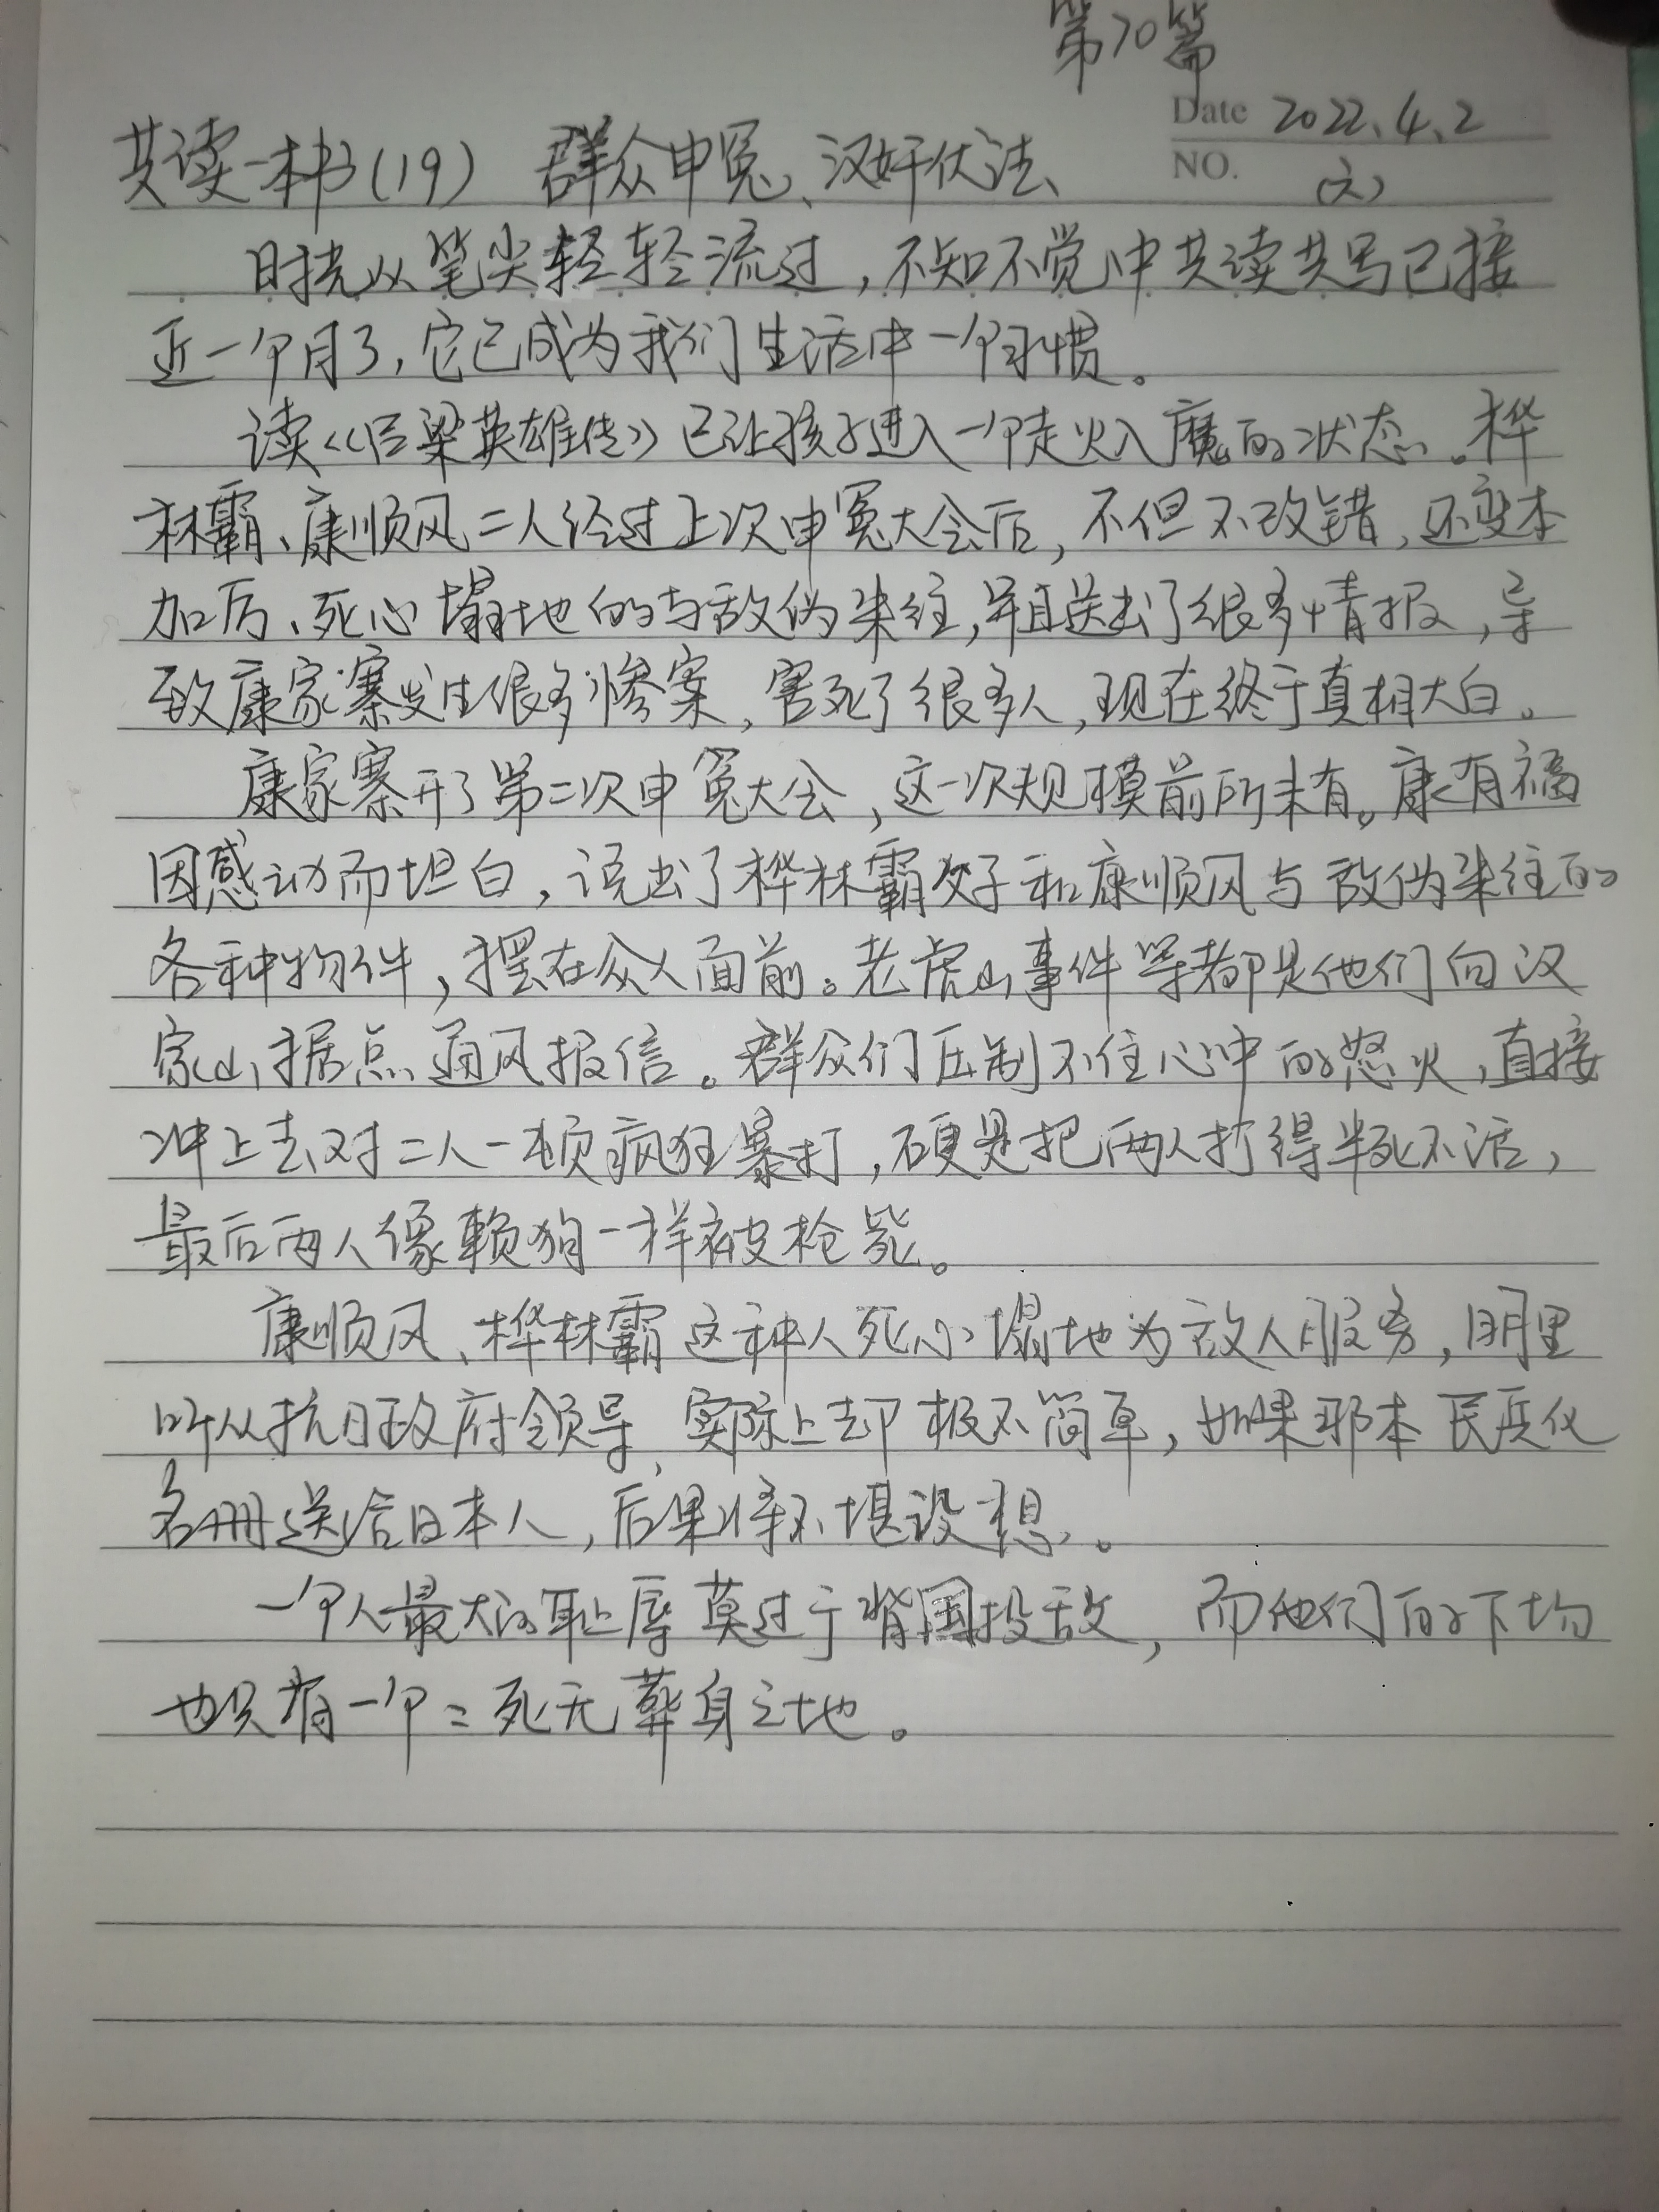 第70篇
Date 2022.4.2
共读一本书(19) 群众申冤、汉奸伏法、
NO. (六)
时光从笔尖轻轻流过,不知不觉中共读共写已接
近一个月了,它已成为我们生活中一个习惯。
读《吕梁英雄传》已让孩子进入一个走火入魔的状态。桦
林霸、康顺风二人经过上次申冤大会后,不但不改错,还变本
加厉、死心塌地的与敌伪来往,并且送出了很多情报,导
致康家寨发生很多惨案,害死了很多人,现在终于真相大白。
康家寨开了第二次申冤大会,这一次规模前所未有。康有福
因感动而坦白,说出了桦林霸父子和康顺风与敌伪来往的
各种物件,摆在众人面前。老虎山事件等都是他们向汉
家山据点通风报信。群众们压制不住心中的怒火,直接
冲上去对二人一顿疯狂暴打,硬是把两人打得半死不活,
最后两人像赖狗一样被枪毙。
康顺风、桦林霸这种人死心塌地为敌人服务,明里
听从抗日政府领导,实际上却极不简单,如果那本民兵化
名册送给日本人,后果将不堪设想。
一个人最大的耻辱莫过于背国投敌,而他们的下场
也只有一个:死无葬身之地。